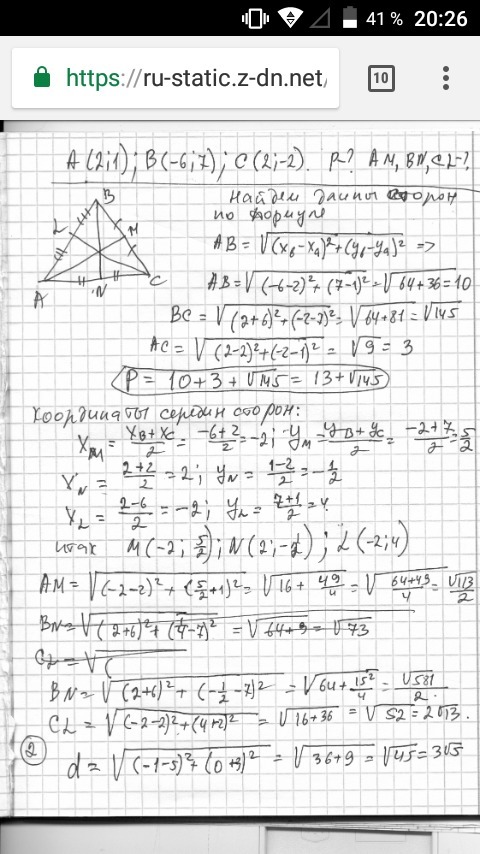 41 % 20:26
https://ru-static.z-dn.net/ 10
A(2;1); B(-6;7); C(2;-2). P? AM, BN, CL-?
Найдем длины сторон
по формуле
B
L M
A N C
AB = √((x_в-x_A)²+(y_в-y_A)²) =>
AB = √((-6-2)²+(7-1)²) = √(64+36) = 10
BC = √((2+6)²+(-2-7)²) = √(64+81) = √145
AC = √((2-2)²+(-2-1)²) = √9 = 3
P = 10+3+√145 = 13+√145
Координаты середин сторон:
X_M = (X_B+X_C)/2 = (-6+2)/2 = -2; Y_M = (Y_B+Y_C)/2 = (-2+7)/2 = 5/2
X_N = (2+2)/2 = 2; Y_N = (1-2)/2 = -1/2
X_L = (2-6)/2 = -2; Y_L = (7+1)/2 = 4.
итак M(-2; 5/2); N(2; -1/2); L(-2;4)
AM = √((-2-2)²+(5/2+1)²) = √(16+49/4) = √((64+49)/4) = √113/2
BN = √((2+6)²+(4-7)²) = √(64+9) = √73
CL = √(
BN = √((2+6)²+(-1/2-7)²) = √(64+15²/4) = √581/2.
CL = √((-2-2)²+(4+2)²) = √(16+36) = √52 = 2√13.
2 d = √((-1-5)²+(0+3)²) = √(36+9) = √45 = 3√5